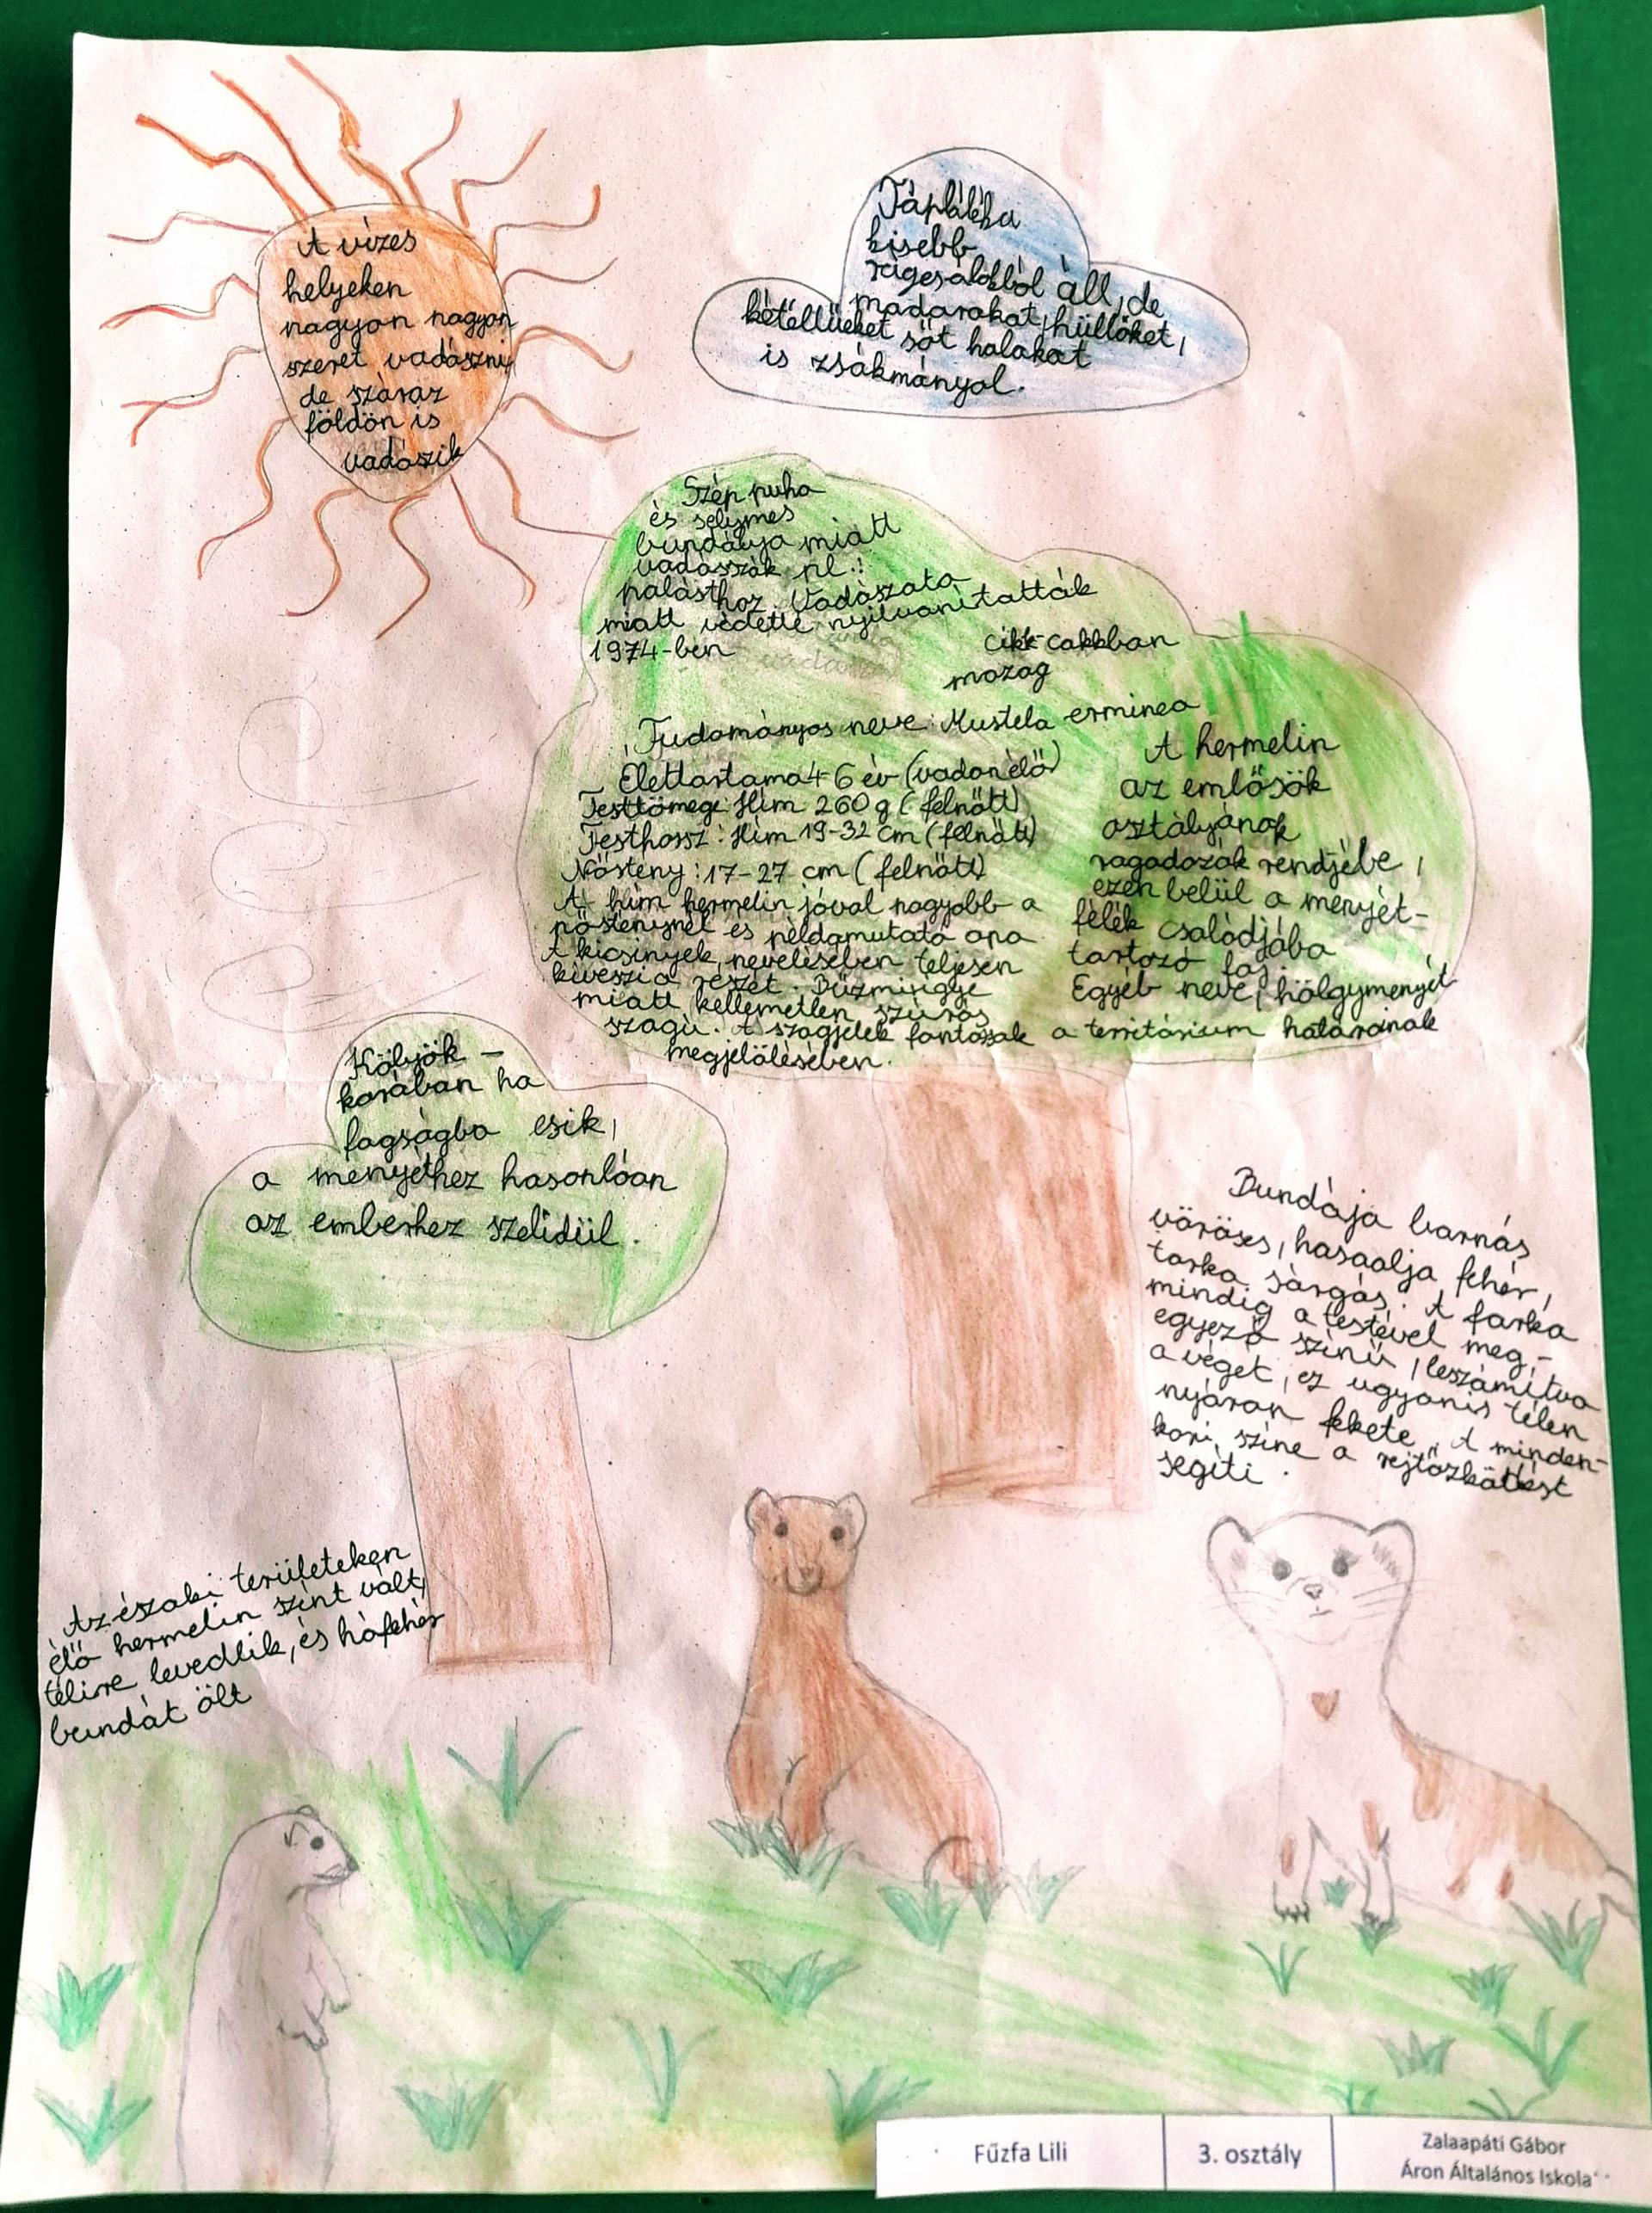 A vizes
helyeken
nagyon nagyon
szeret vadászni
de száraz
földön is
vadászik
Tápláléka
kisebb
rágcsálókból áll, de
madarakat, hüllőket,
kétéltűeket sőt halakat
is zsákmányol.
Szép puha
és selymes
bundája miatt
vadásszák pl.:
palásthoz. Vadászata
miatt védetté nyilvanították
1974-ben
cikk-cakkban
mozog
Tudományos neve: Mustela erminea
Élettartama 4-6 év (vadon élő)
Testtömeg: Hím 260 g (felnőtt)
Testhossz: Hím 19-32 cm (felnőtt)
Nőstény: 17-27 cm (felnőtt)
A hím hermelin jóval nagyobb a
nősténynél és példamutató apa
A kicsinyek nevelésében teljesen
kiveszi a részét. Bűzmirigye
miatt kellemetlen szúrós
szagú. A szagjelek fontosak a territórium határainak
megjelölésében.
A hermelin
az emlősök
osztályának
ragadozók rendjébe,
ezen belül a menyét-
félék családjába
tartozó faj
Egyéb neve, hölgymenyét
Kölyök-
korában ha
fogságba esik,
a menyéthez hasonlóan
az emberhez szelidül.
Bundája barnás
vöröses, hasaalja fehér,
tarka sárgás. A farka
mindig a testével meg-
egyező színű, leszámítva
a végét, ez ugyanis télen
nyáron fekete. A minden-
kori színe a rejtőzködést
segíti.
Az északi területeken
élő hermelin színt vált,
télire levedlik, és hófehér
bundát ölt
Fűzfa Lili
3. osztály
Zalaapáti Gábor
Áron Általános Iskola